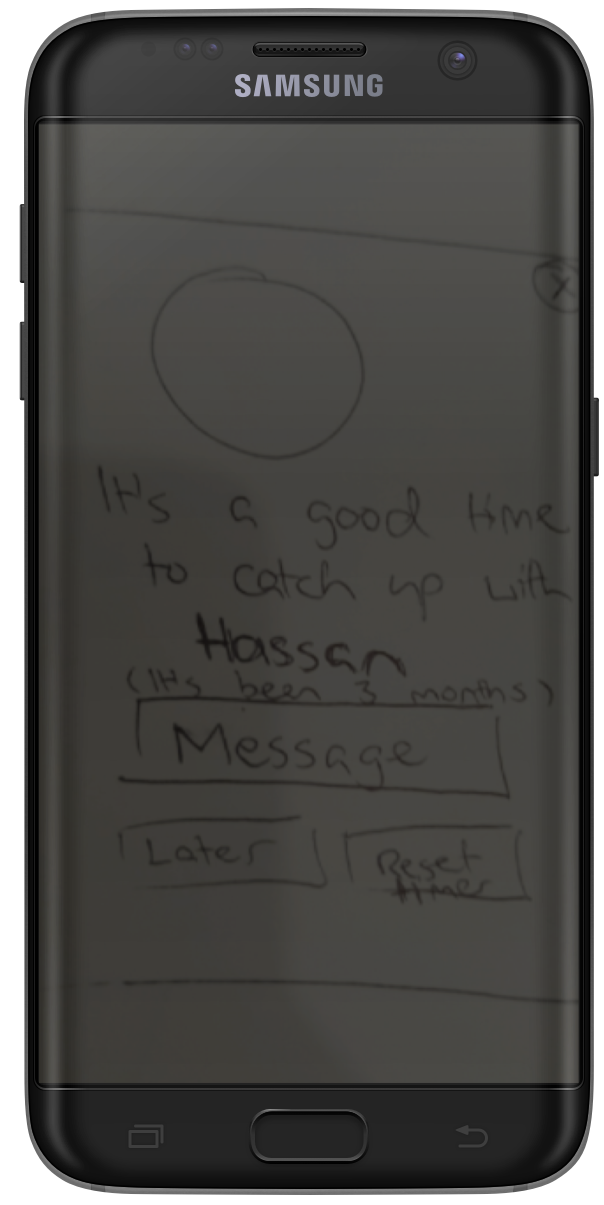 SAMSUNG
X
It's a good time
to catch up with
Hassan
(It's been 3 months)
Message
Later
Reset
timer